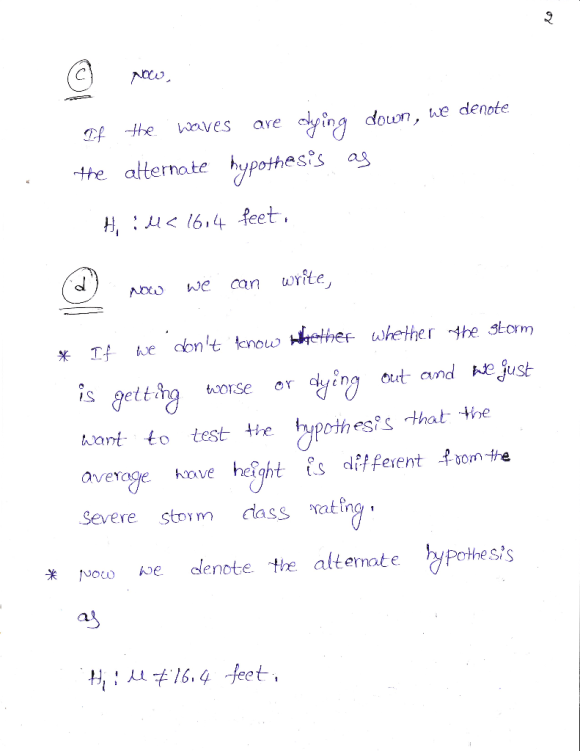 2
(c) Now,
If the waves are dying down, we denote
the alternate hypothesis as
H₁ : μ < 16.4 feet.
(d) Now we can write,
* If we don't know whether whether the storm
is getting worse or dying out and we just
want to test the hypothesis that the
average wave height is different from the
severe storm class rating.
* Now we denote the alternate hypothesis
as
H₁ : μ ≠ 16.4 feet.